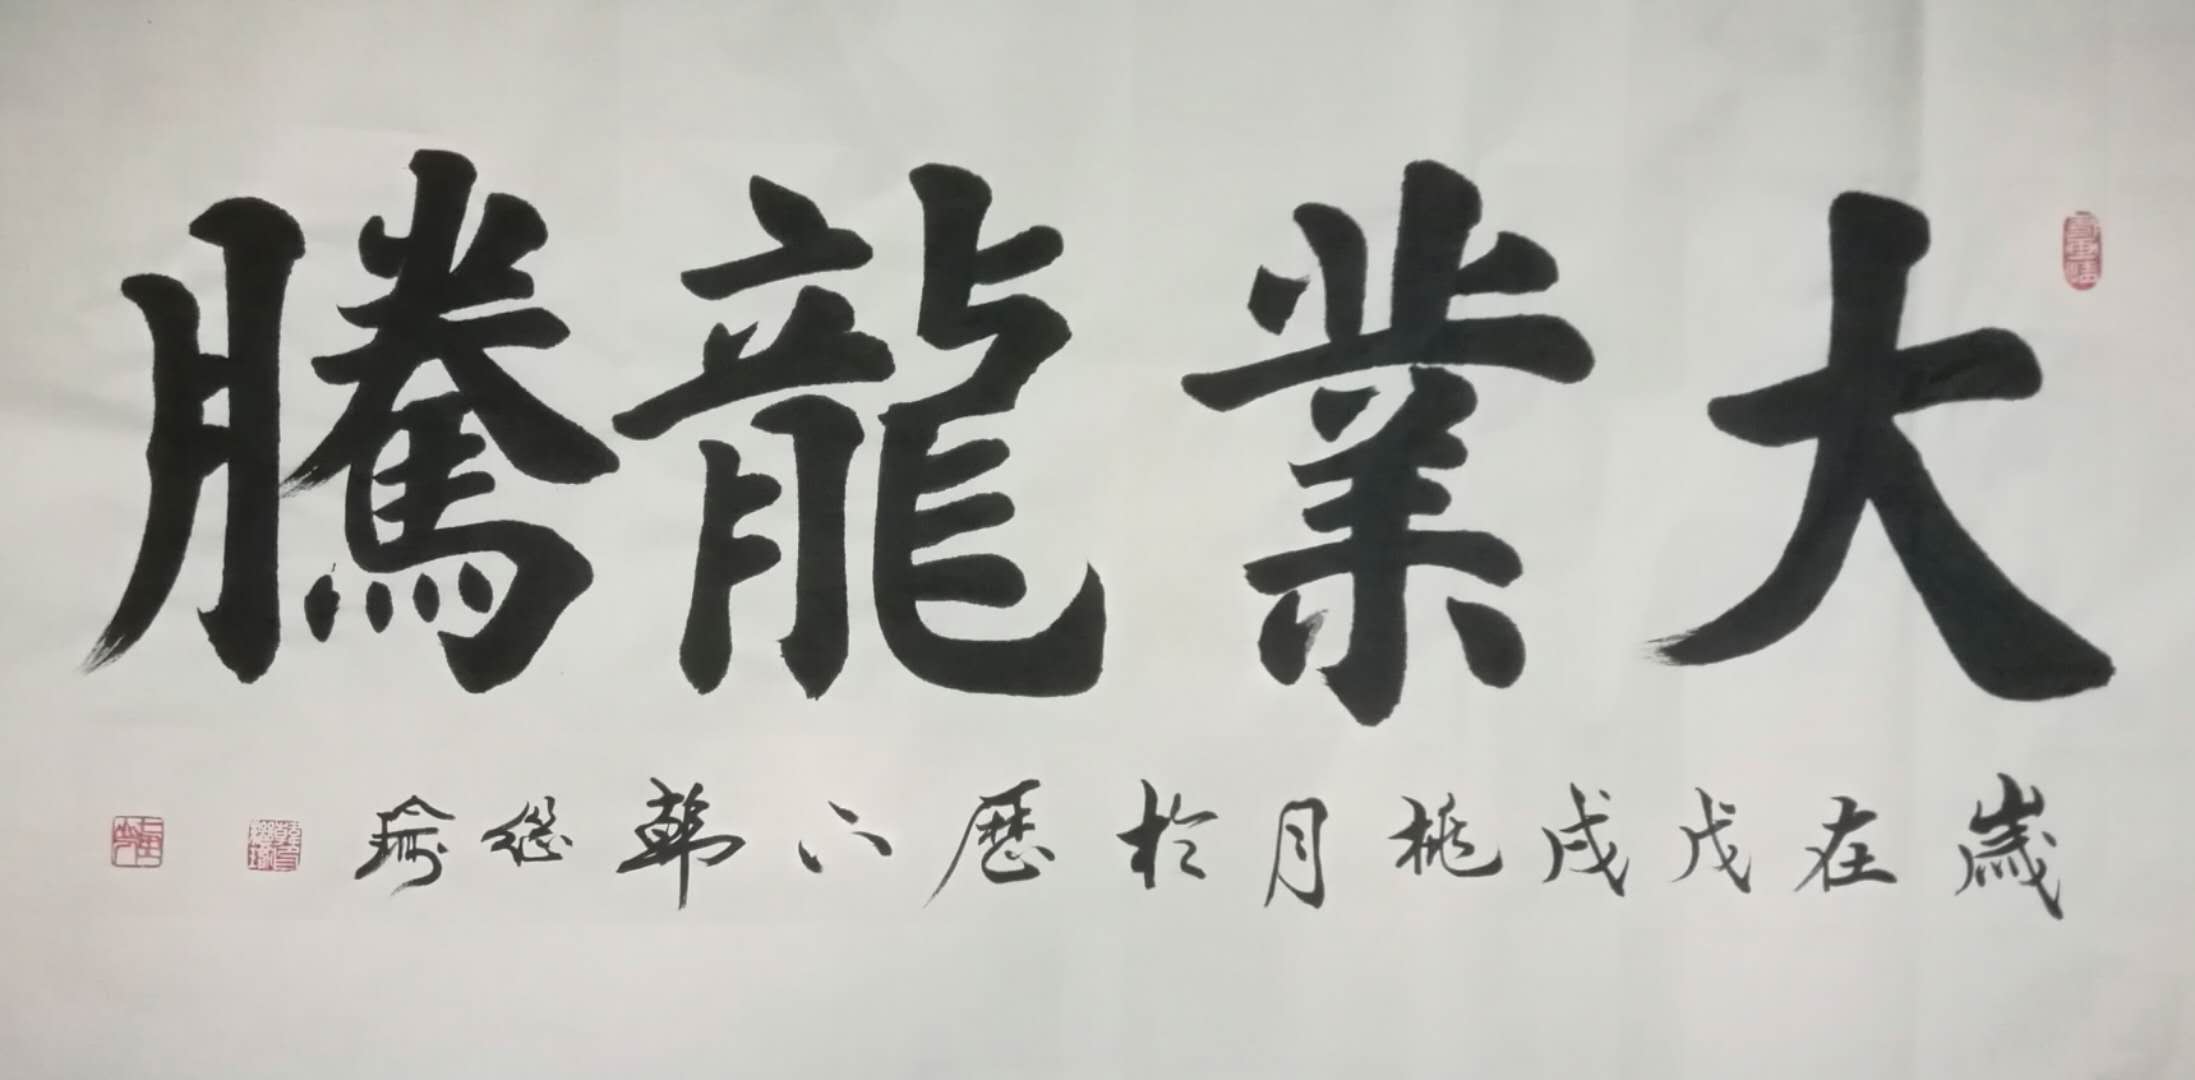 大業龍騰
歲在戊戌桃月於歷下韓繼瑜